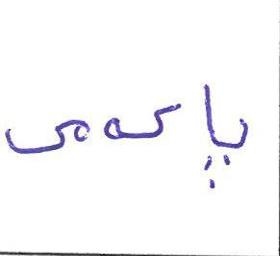 پاکەی